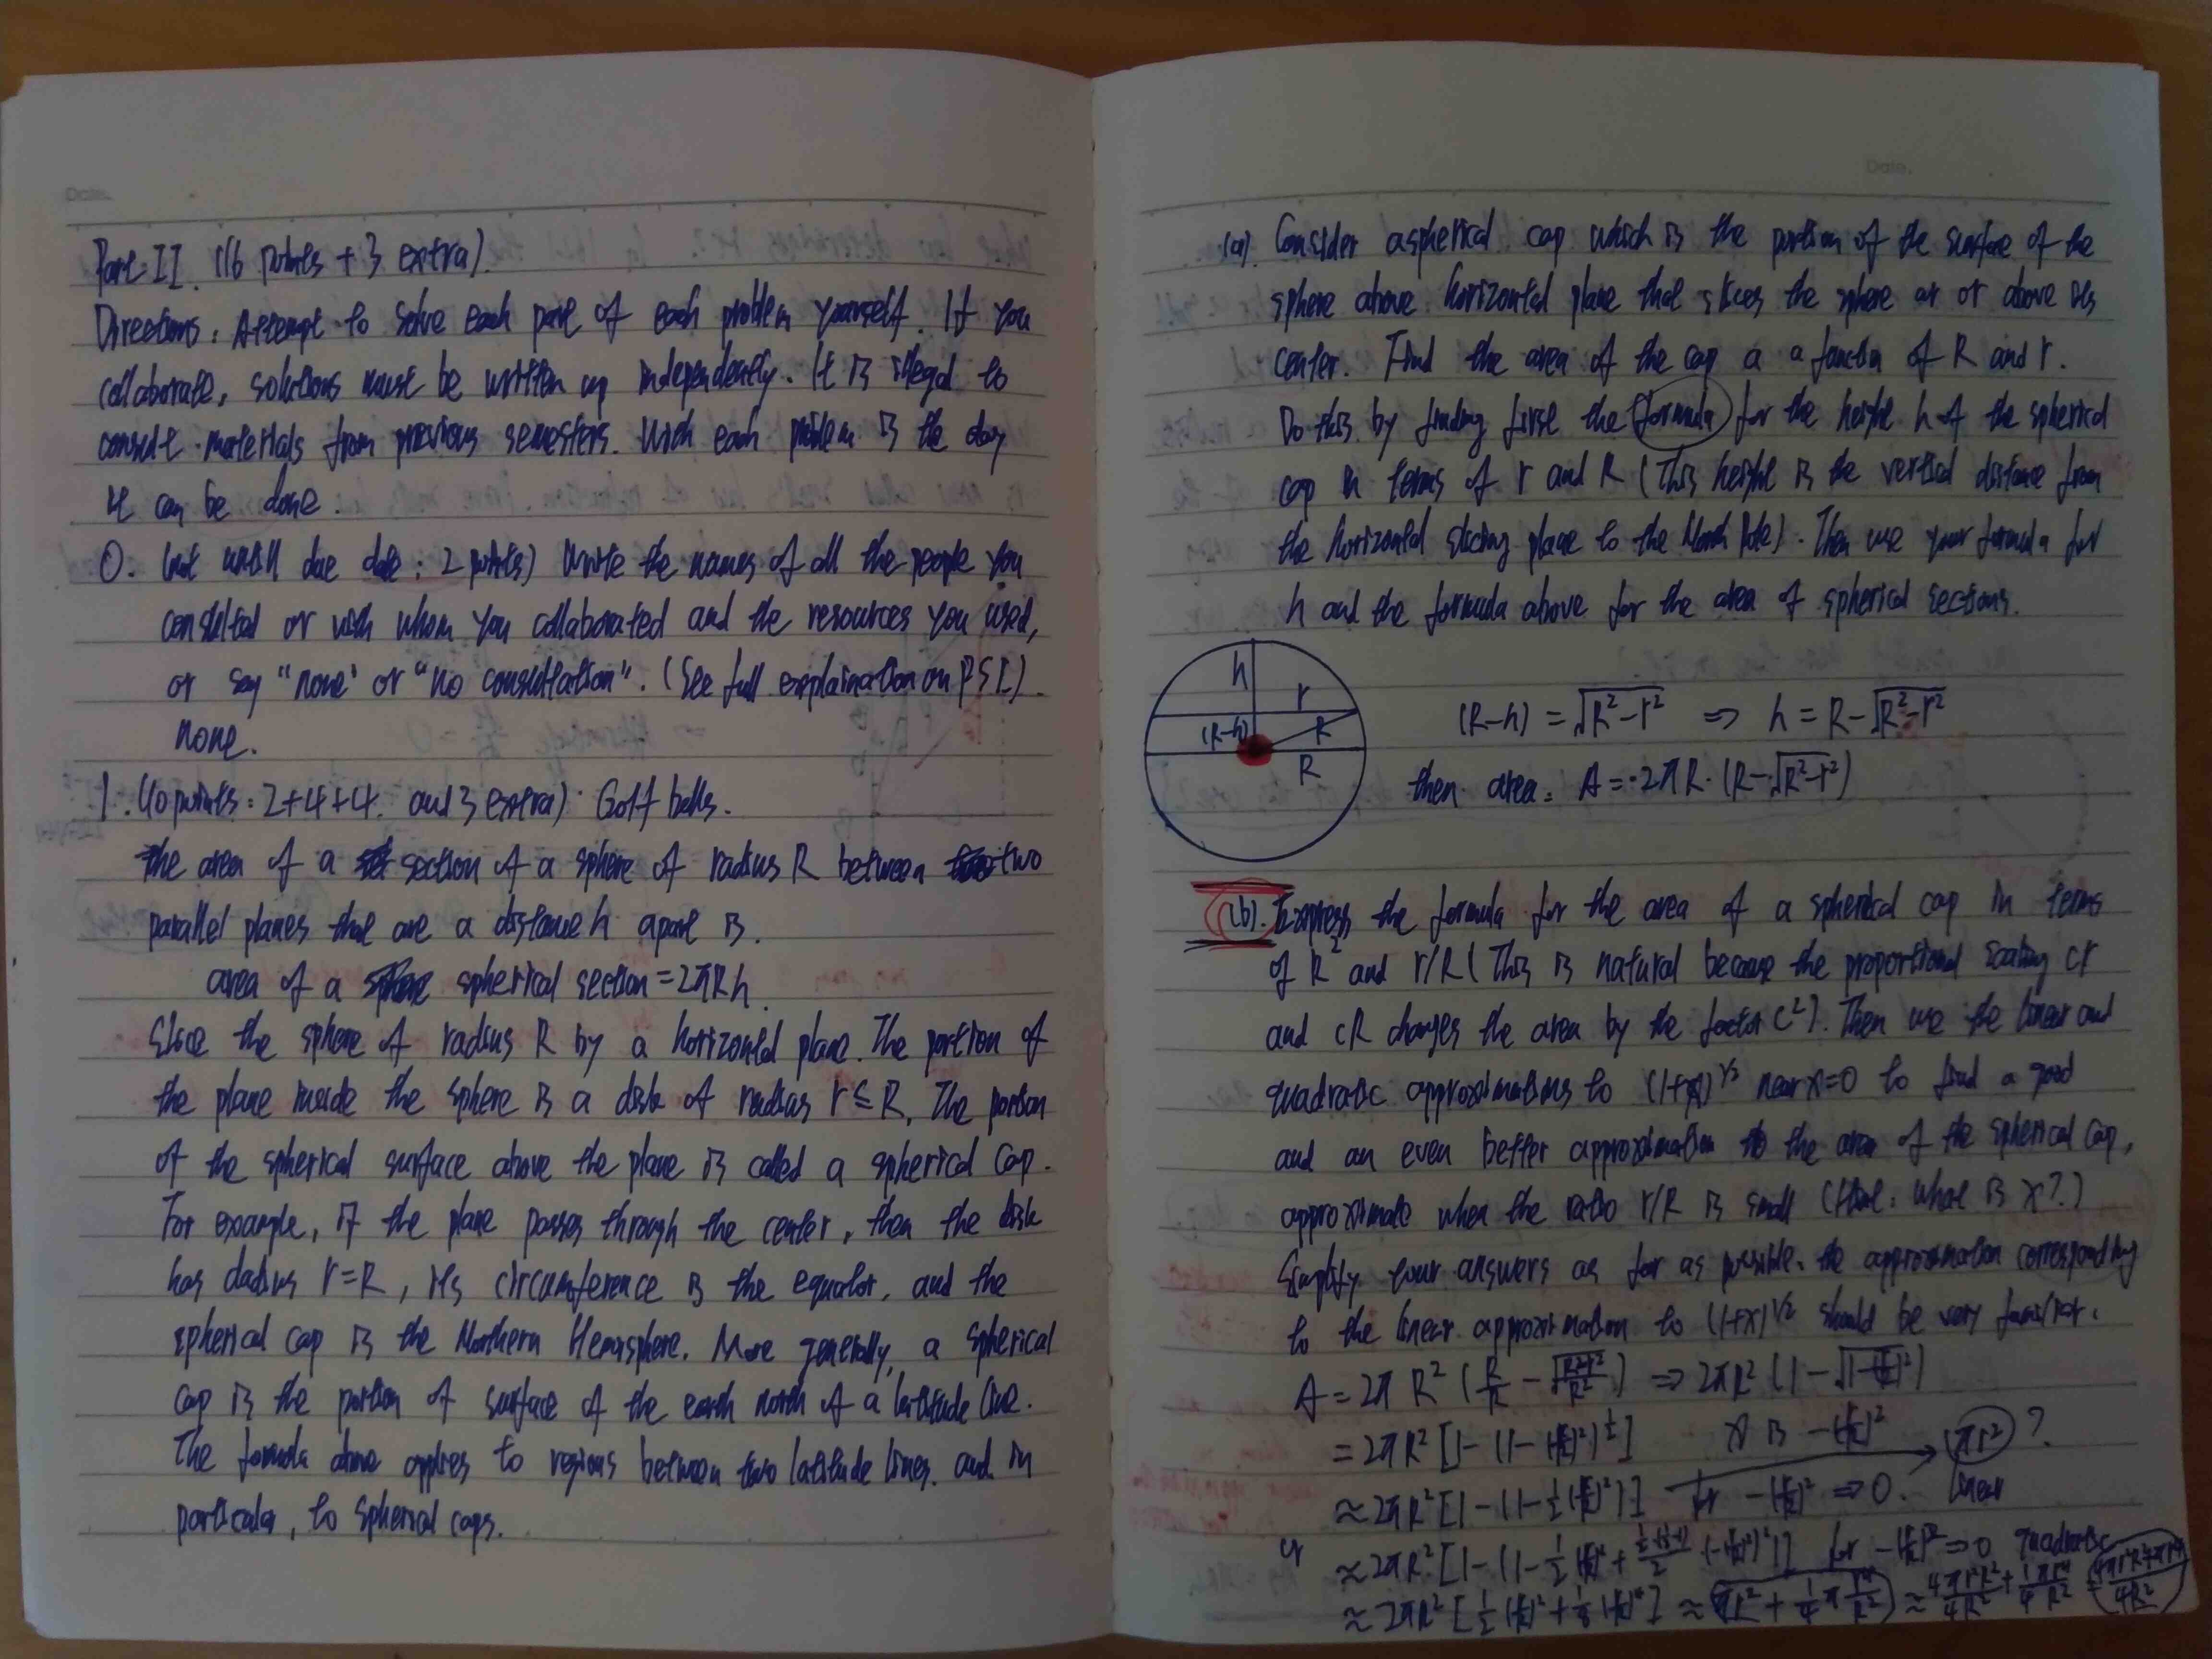 Date.
Part II. (16 points + 3 extra)
Directions: Attempt to solve each part of each problem yourself. If you
collaborate, solutions must be written up independently. It is illegal to
consult materials from previous semesters. With each problem is the day
it can be done.
0. (not until due date; 2 points) Write the names of all the people you
consulted or with whom you collaborated and the resources you used,
or say "none" or "no consultation". (See full explaination on PS1).
None.
1. (10 points: 2+4+4. and 3 extra) Golf balls.
The area of a section of a sphere of radius R between two
parallel planes that are a distance h apart is.
area of a spherical section = 2πRh.
Slice the sphere of radius R by a horizontal plane. The portion of
the plane inside the sphere is a disk of radius r ≤ R. The portion
of the spherical surface above the plane is called a spherical cap.
For example, if the plane passes through the center, then the disk
has dadius r=R, its circumference is the equator, and the
spherical cap is the Northern Hemisphere. More generally, a spherical
cap is the portion of surface of the earth north of a latitude line.
The formula above applies to regions between two latitude lines. and in
particular, to spherical caps.
Date.
(a). Consider a spherical cap which is the portion of the surface of the
sphere above horizontal plane that slices the sphere at or above its
center. Find the area of the cap a a function of R and r.
Do this by finding first the formula for the height h of the spherical
cap in terms of r and R (This height is the vertical distance from
the horizontal slicing plane to the North Pole). Then use your formula for
h and the formula above for the area of spherical sections.
h
r
(R-h)
R
R
(R-h) = √R²-r² ⇒ h = R-√R²-r²
then area: A = 2πR·(R-√R²-r²)
(b). Express the formula for the area of a spherical cap in terms
of R² and r/R (This is natural because the proportional scaling cr
and cR changes the area by the factor c²). Then use the linear and
quadratic approximations to (1+x)^1/2 near x=0 to find a good
and an even better approximation to the area of the spherical cap,
approximate when the ratio r/R is small (Hint: what is x?)
Simplify your answers as far as possible. the approximation corresponding
to the linear approximation to (1+x)^1/2 should be very familiar.
A = 2πR² (R/R - √(R²-r²)/R²) ⇒ 2πR² (1-√1-(r/R)²)
= 2πR² [1-(1-(r/R)²)^1/2] x is -(r/R)² πr² ?
≈ 2πR² [1-(1-½(r/R)²)] for -(r/R)² ⇒ 0. linear
or ≈ 2πR² [1-(1-½(r/R)²+ ½(½-1)/2 (-(r/R)²)²)] for -(r/R)² ⇒ 0 quadratic
≈ 2πR² [½(r/R)² + ⅛(r/R)⁴] ≈ πr² + ¼π r⁴/R² ≈ 4πr²R²/4R² + ¼ πr⁴/R² = 4πr²R²+πr⁴/4R²